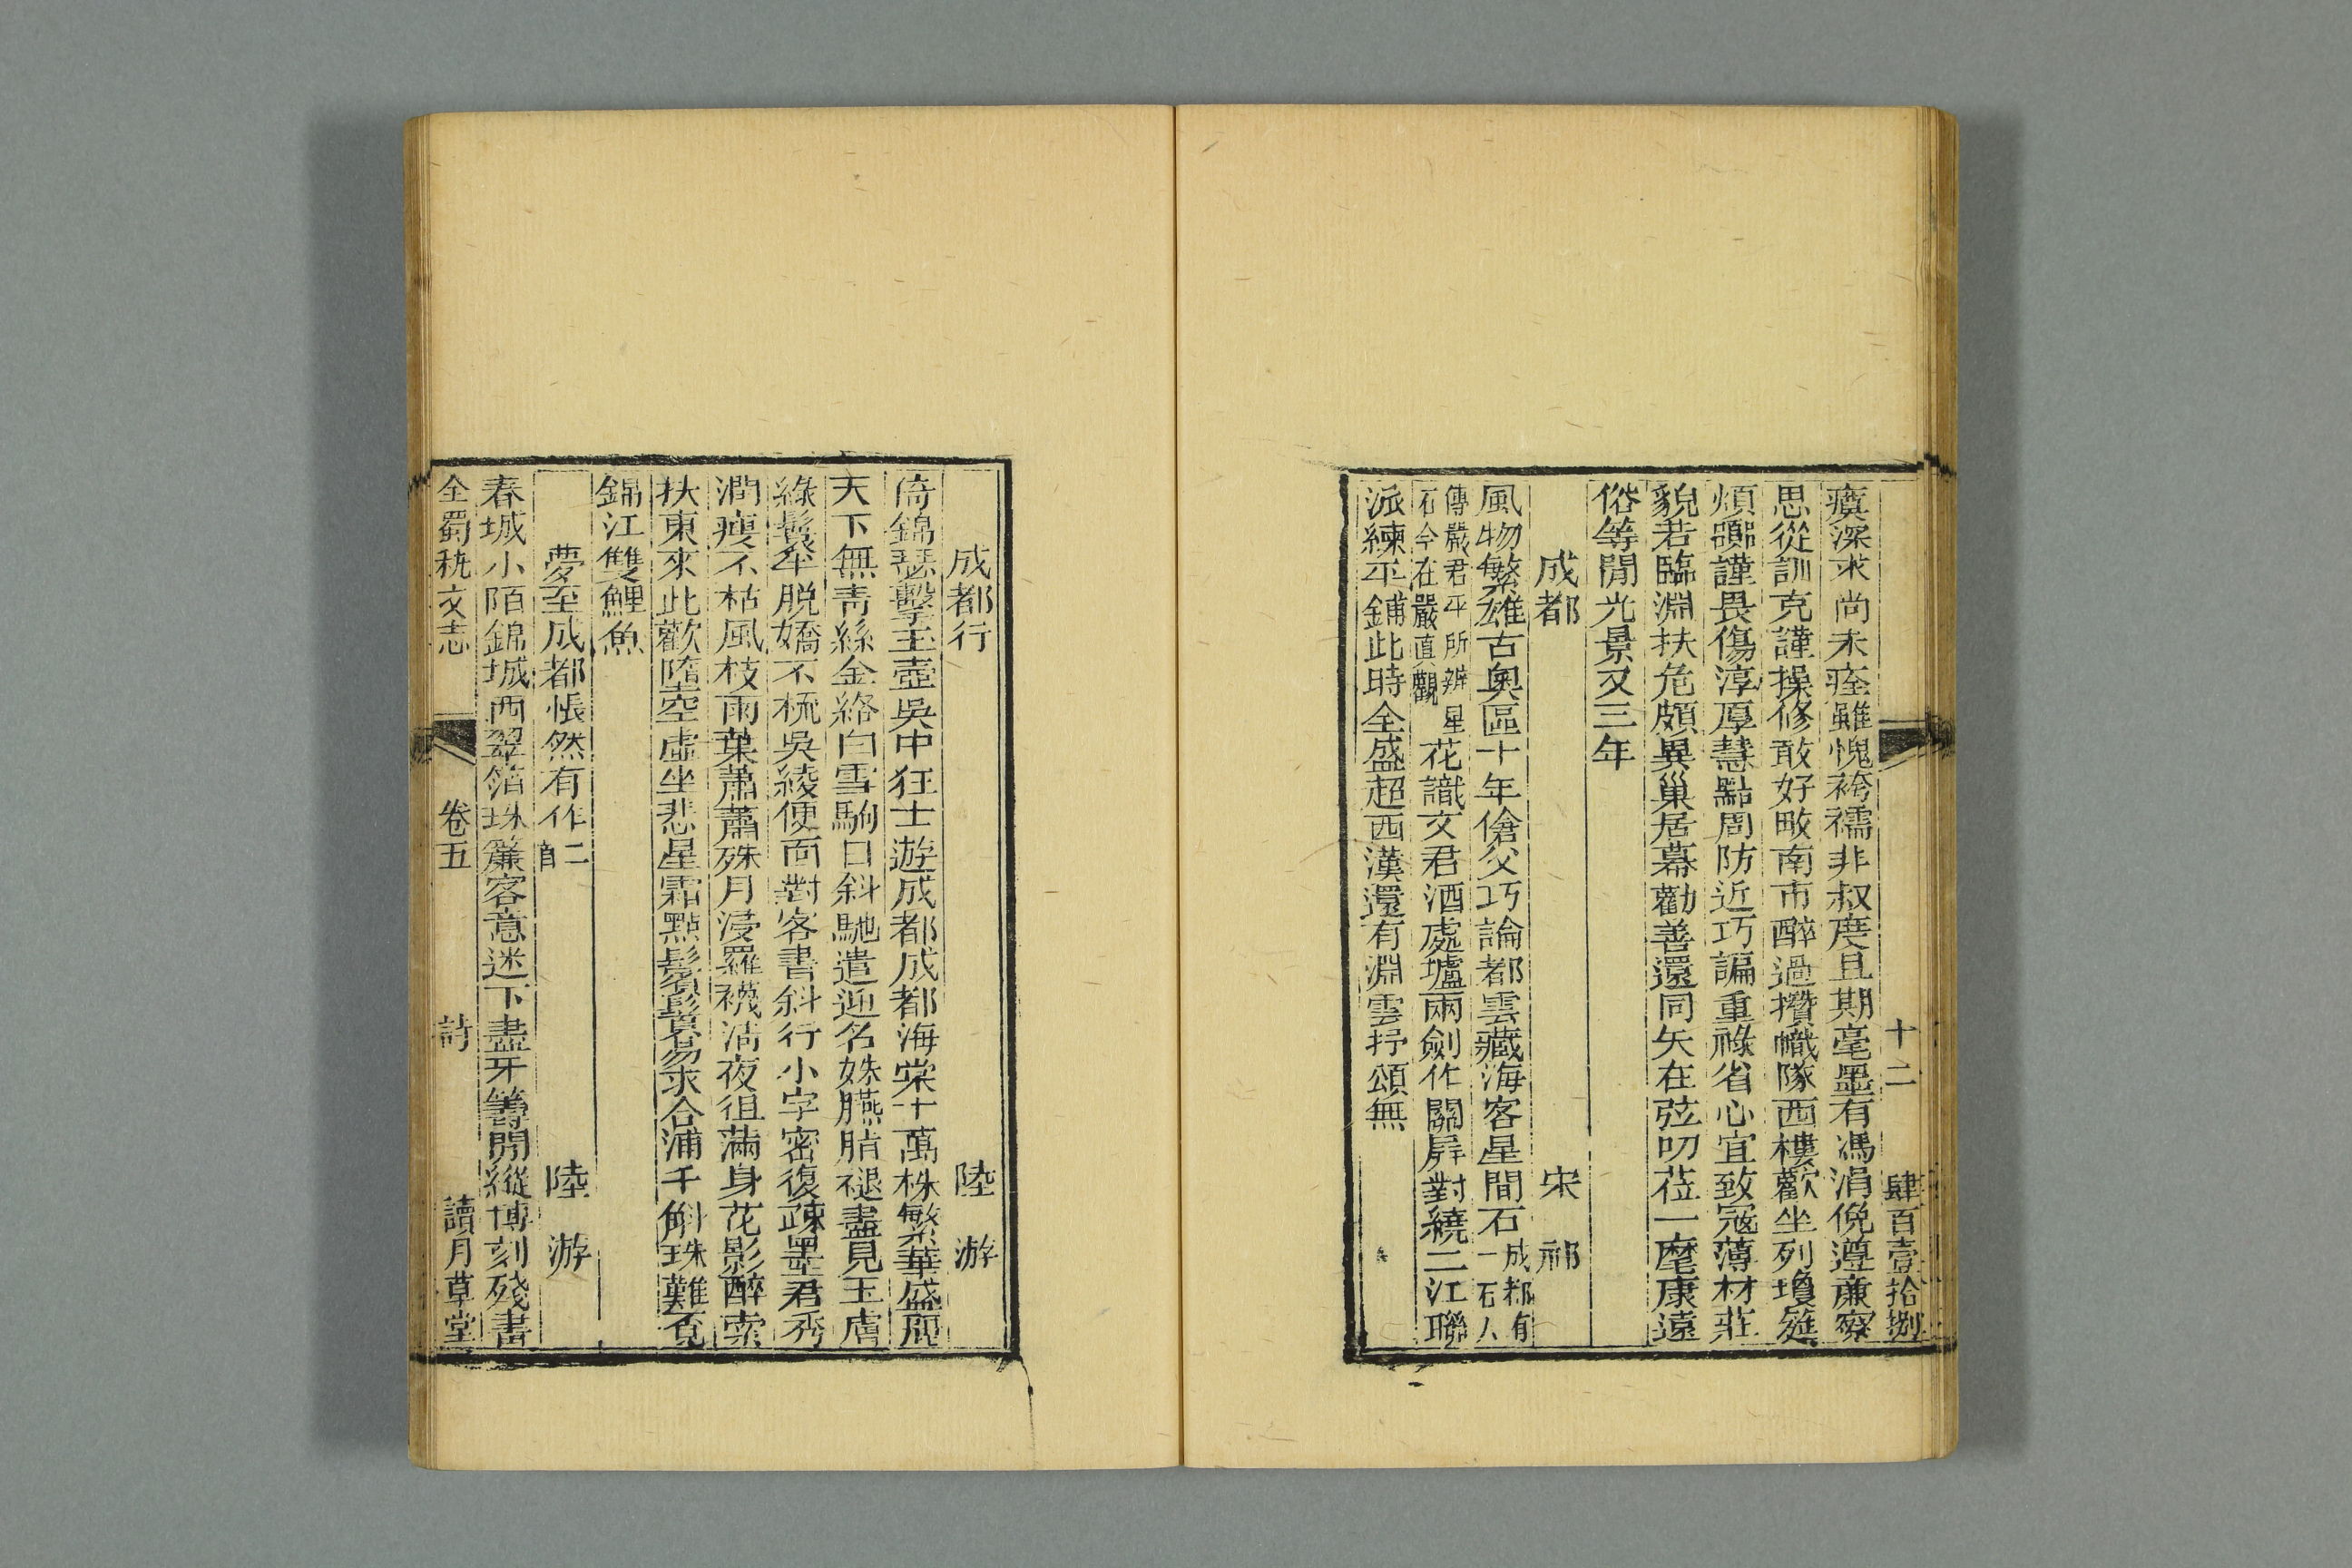 十二 肆百壹拾捌
瘼深求尚未痊雖愧袴襦非叔度且期毫墨有馮涓俛遵廉察
思從訓克謹操修敢好畋南市醉過攢幟隊西樓歡坐列瓊筵
煩謹畏傷淳厚慧黠周防近巧諞重祿省心宜致寇薄材莊
貌若臨淵扶危頗異巢居幕勸善還同矢在弦叨莅一麾康遠
俗等閒光景又三年
成都 宋祁
風物繁雄古奧區十年傖父巧論都雲藏海客星間石成都有一石人
傳嚴君平所辨星石今在嚴真觀花識文君酒處壚兩劍作關屏對繞二江聯
派練平鋪此時全盛超西漢還有淵雲抒頌無
成都行 陸游
倚錦瑟擊玉壺吳中狂士遊成都成都海棠十萬株繁華盛麗
天下無青絲金絡白雪駒日斜馳遣迎名姝臙脂褪盡見玉膚
綠鬟半脫嬌不梳吳綾便面對客書斜行小字密復疎墨君秀
潤瘦不枯風枝雨葉蕭蕭殊月浸羅襪淸夜徂滿身花影醉索
扶東來此歡墮空虛坐悲星霜點鬢鬚易求合浦千斛珠難覓
錦江雙鯉魚
夢至成都悵然有作二首 陸游
春城小陌錦城西翠箔珠簾客意迷下盡牙籌閒縱博刻殘畫
全蜀秇文志 卷五 詩 讀月草堂